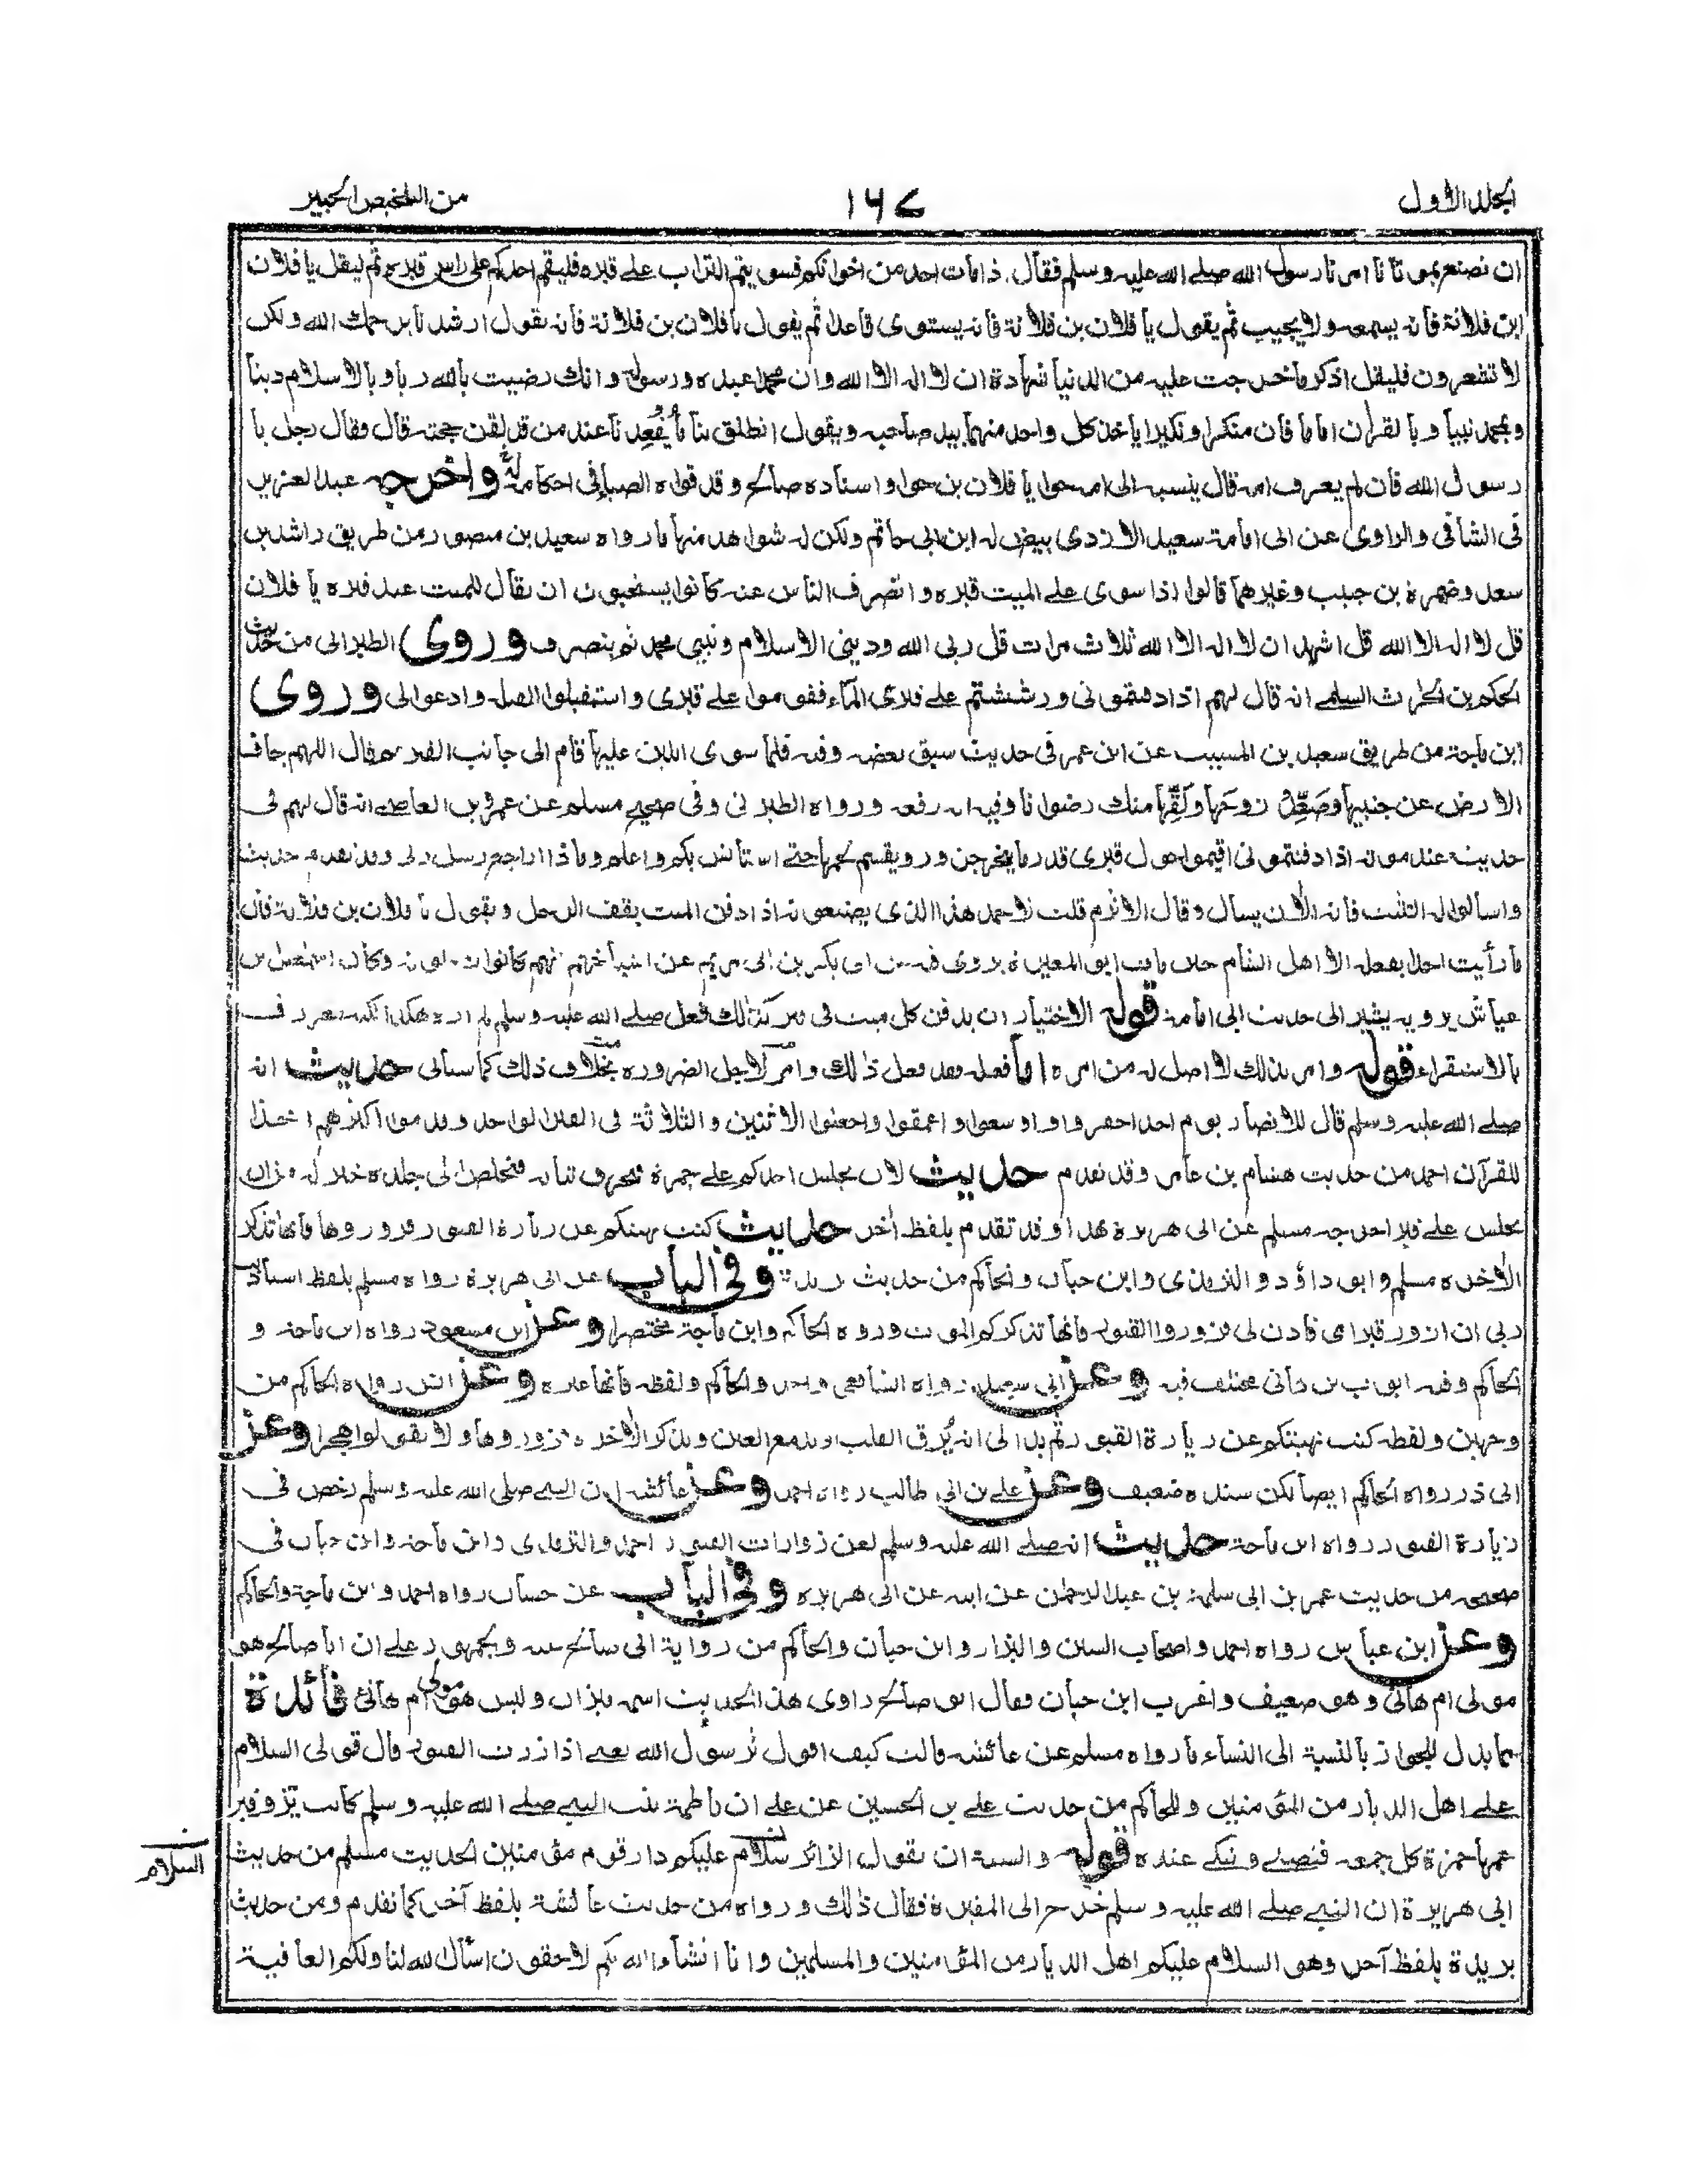 الجلد الاول
١٦٧
من التلخيص الحبير
ان نصنع بموتانا امرنا رسول الله صلى الله عليه وسلم فقال اذا مات احد من اخوانكم فسويتم التراب على قبره فليقم احدكم على راس قبره ثم ليقل يا فلان
ابن فلانة فانه يسمعه ولا يجيب ثم يقول يا فلان بن فلانة فانه يستوى قاعدا ثم يقول يا فلان بن فلانة فانه يقول ارشدنا يرحمك الله ولكن
لا تشعرون فليقل اذكر ما خرجت عليه من الدنيا شهادة ان لا اله الا الله وان محمدا عبده ورسوله وانك رضيت بالله ربا وبالاسلام دينا
وبمحمد نبيا وبالقرآن اماما فان منكرا ونكيرا ياخذ كل واحد منهما بيد صاحبه ويقول انطلق بنا ما يُقعِدنا عند من قد لقن حجته قال فقال رجل يا
رسول الله فان لم يعرف امه قال ينسبه الى امه حوا يا فلان بن حوا واسناده صالح وقد قواه الضيا فى احكامه واخرجه عبد العزيز
فى الشافى والراوى عن ابى امامة سعيد الازدى بيض له ابن ابى حاتم ولكن له شواهد منها ما رواه سعيد بن منصور من طريق راشد بن
سعد وضمرة بن حبيب وغيرهما قالوا اذا سوى على الميت قبره وانصرف الناس عنه كانوا يستحبون ان يقال للميت عند قبره يا فلان
قل لا اله الا الله قل اشهد ان لا اله الا الله ثلاث مرات قل ربى الله ودينى الاسلام ونبيى محمد ثم ينصرف وروى الطبرانى من حديث
الحكم بن الحارث السلمى انه قال لهم اذا دفنتمونى ورششتم على قبرى الماء فقوموا على قبرى واستقبلوا القبلة وادعوا لى وروى
ابن ماجة من طريق سعيد بن المسيب عن ابن عمر فى حديث سبق بعضه وفيه فلما سوى اللبن عليها قام الى جانب القبر ثم قال اللهم جاف
الارض عن جنبيها وصَعِّد روحها ولَقِّها منك رضوانا وفيه انه رفعه ورواه الطبرانى وفى صحيح مسلم عن عمرو بن العاص انه قال لهم فى
حديث عند موته اذا دفنتمونى اقيموا حول قبرى قدر ما ينحر جزور ويقسم لحمها حتى استانس بكم واعلم ماذا اراجع رسل ربى وقد تقدم حديث
واسألوا له التثبت فانه الآن يسأل وقال الاثرم قلت لاحمد هذا الذى يصنعونه اذا دفن الميت يقف الرجل ويقول يا فلان بن فلانة قال
ما رأيت احدا يفعله الا اهل الشام حين مات ابو المغيرة يروى فيه عن ابى بكر بن ابى مريم عن اشياخهم انهم كانوا يفعلونه وكان اسمعيل بن
عياش يرويه يشير الى حديث ابى امامة قوله الاختيار ان يدفن كل ميت فى قبر كذلك فعل صلى الله عليه وسلم لم اره هكذا لكنه معروف
بالاستقراء قوله وامر بذلك لا اصل له من امره اما فعله فقد فعل ذلك وامر لاجل الضرورة بخلاف ذلك كما سياتى حديث انه
صلى الله عليه وسلم قال للانصار يوم احد احفروا واوسعوا واعمقوا واجعلوا الاثنين والثلاثة فى القبر الواحد وقدموا اكثرهم اخذا
للقرآن احمد من حديث هشام بن عامر وقد تقدم حديث لان يجلس احدكم على جمرة فتحرق ثيابه فتخلص الى جلده خير له من ان
يجلس على قبر اخرجه مسلم عن ابى هريرة بهذا وقد تقدم بلفظ آخر حديث كنت نهيتكم عن زيارة القبور فزوروها فانها تذكر
الآخرة مسلم وابو داؤد والترمذى وابن حبان والحاكم من حديث بريدة وفى الباب عن ابى هريرة رواه مسلم بلفظ استاذنت
ربى ان ازور قبر امى فاذن لى فزوروا القبور فانها تذكركم الموت ورواه الحاكم وابن ماجة مختصرا وعن ابن مسعود رواه ابن ماجة و
الحاكم وفيه ايوب بن هانئ مختلف فيه وعن ابى سعيد رواه الشافعى واحمد والحاكم ولفظه فانها عبرة وعن انس رواه الحاكم من
وجهين ولفظه كنت نهيتكم عن زيارة القبور ثم بدا لى انه يُرِق القلب وتدمع العين ويذكر الآخرة فزوروها ولا تقولوا هجرا وعن
ابى ذر رواه الحاكم ايضا لكن سنده ضعيف وعن على بن ابى طالب رواه احمد وعن عائشة ان النبى صلى الله عليه وسلم رخص فى
زيارة القبور رواه ابن ماجة حديث انه صلى الله عليه وسلم لعن زوارات القبور احمد والترمذى وابن ماجة وابن حبان فى
صحيحه من حديث عمر بن ابى سلمة بن عبد الرحمن عن ابيه عن ابى هريرة وفى الباب عن حسان رواه احمد وابن ماجة والحاكم
وعن ابن عباس رواه احمد واصحاب السنن والبزار وابن حبان والحاكم من رواية ابى صالح عنه والجمهور على ان ابا صالح هو
مولى ام هانى وهو ضعيف واغرب ابن حبان فقال ابو صالح راوى هذا الحديث اسمه ميزان وليس هو مولى ام هانئ فائدة
مما يدل للجواز بالنسبة الى النساء ما رواه مسلم عن عائشة قالت كيف اقول يا رسول الله يعنى اذا زرت القبور قال قولى السلام
على اهل الديار من المؤمنين وللحاكم من حديث على بن الحسين عن على ان فاطمة بنت النبى صلى الله عليه وسلم كانت تزور قبر
عمها حمزة كل جمعة فتصلى وتبكى عنده قوله والسنة ان يقول الزائر سلام عليكم دار قوم مؤمنين الحديث مسلم من حديث
السلام
ابى هريرة ان النبى صلى الله عليه وسلم خرج الى المقبرة فقال ذلك ورواه من حديث عائشة بلفظ آخر كما تقدم ومن حديث
بريدة بلفظ آخر وهو السلام عليكم اهل الديار من المؤمنين والمسلمين وانا انشاء الله بكم لاحقون اسأل الله لنا ولكم العافية